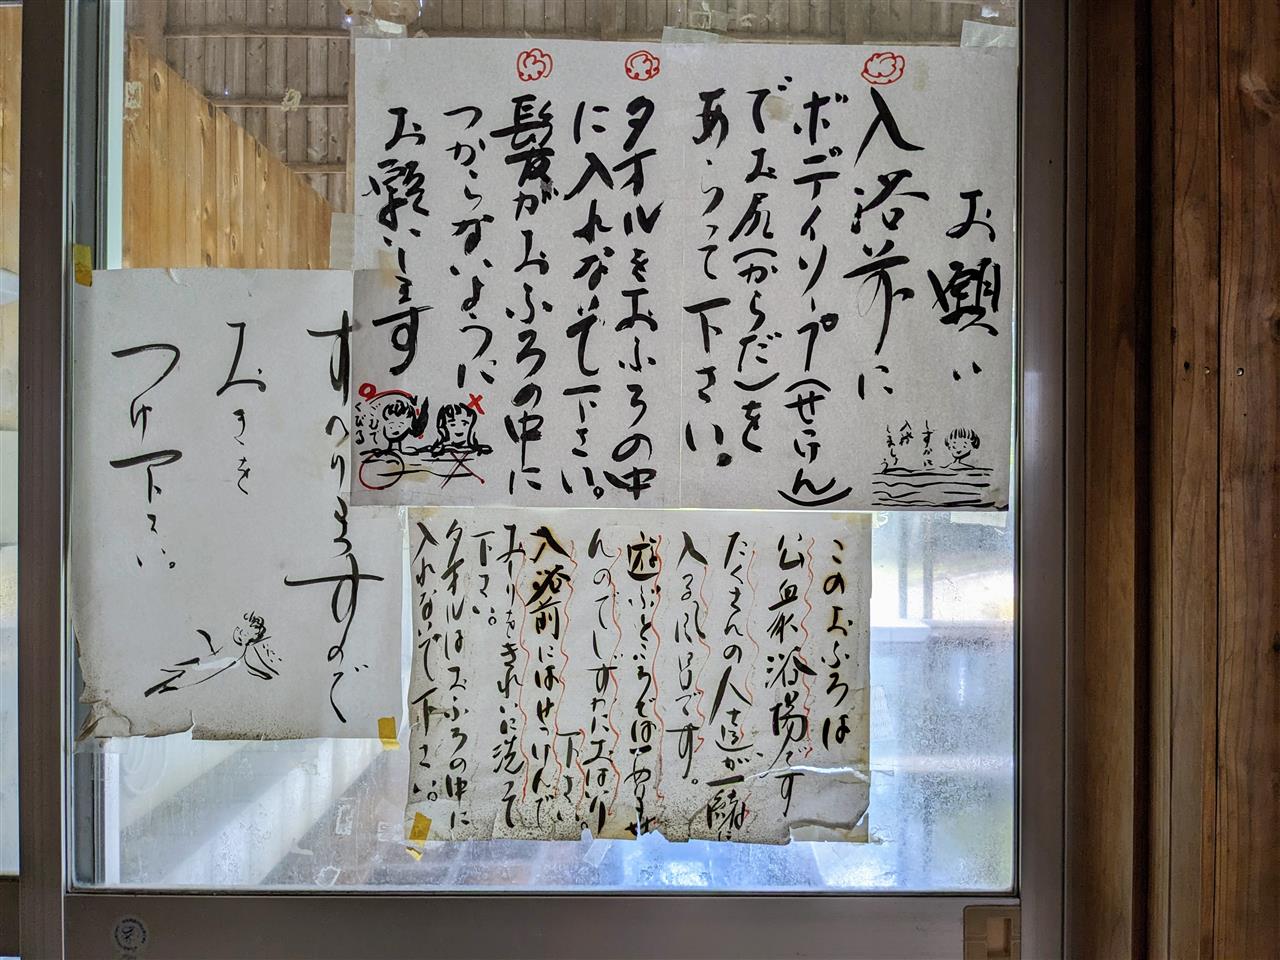 お願い
入浴前に
ボディソープ(せっけん)
でお尻(からだ)を
あらって下さい。
タオルをおふろの中
に入れないで下さい。
髪がおふろの中に
つからないように
お願いします
しずかに
入浴
しましょう
すべりますので
お き を
つけ下さい。
このおふろは
公衆浴場です
たくさんの人達が一緒に
入る風呂です。
遊ぶところではありませ
んのでしずかにおはいり
下さい
入浴前にはせっけんで
おしりをきれいに洗って
下さい。
タオルはおふろの中に
入れないで下さい。